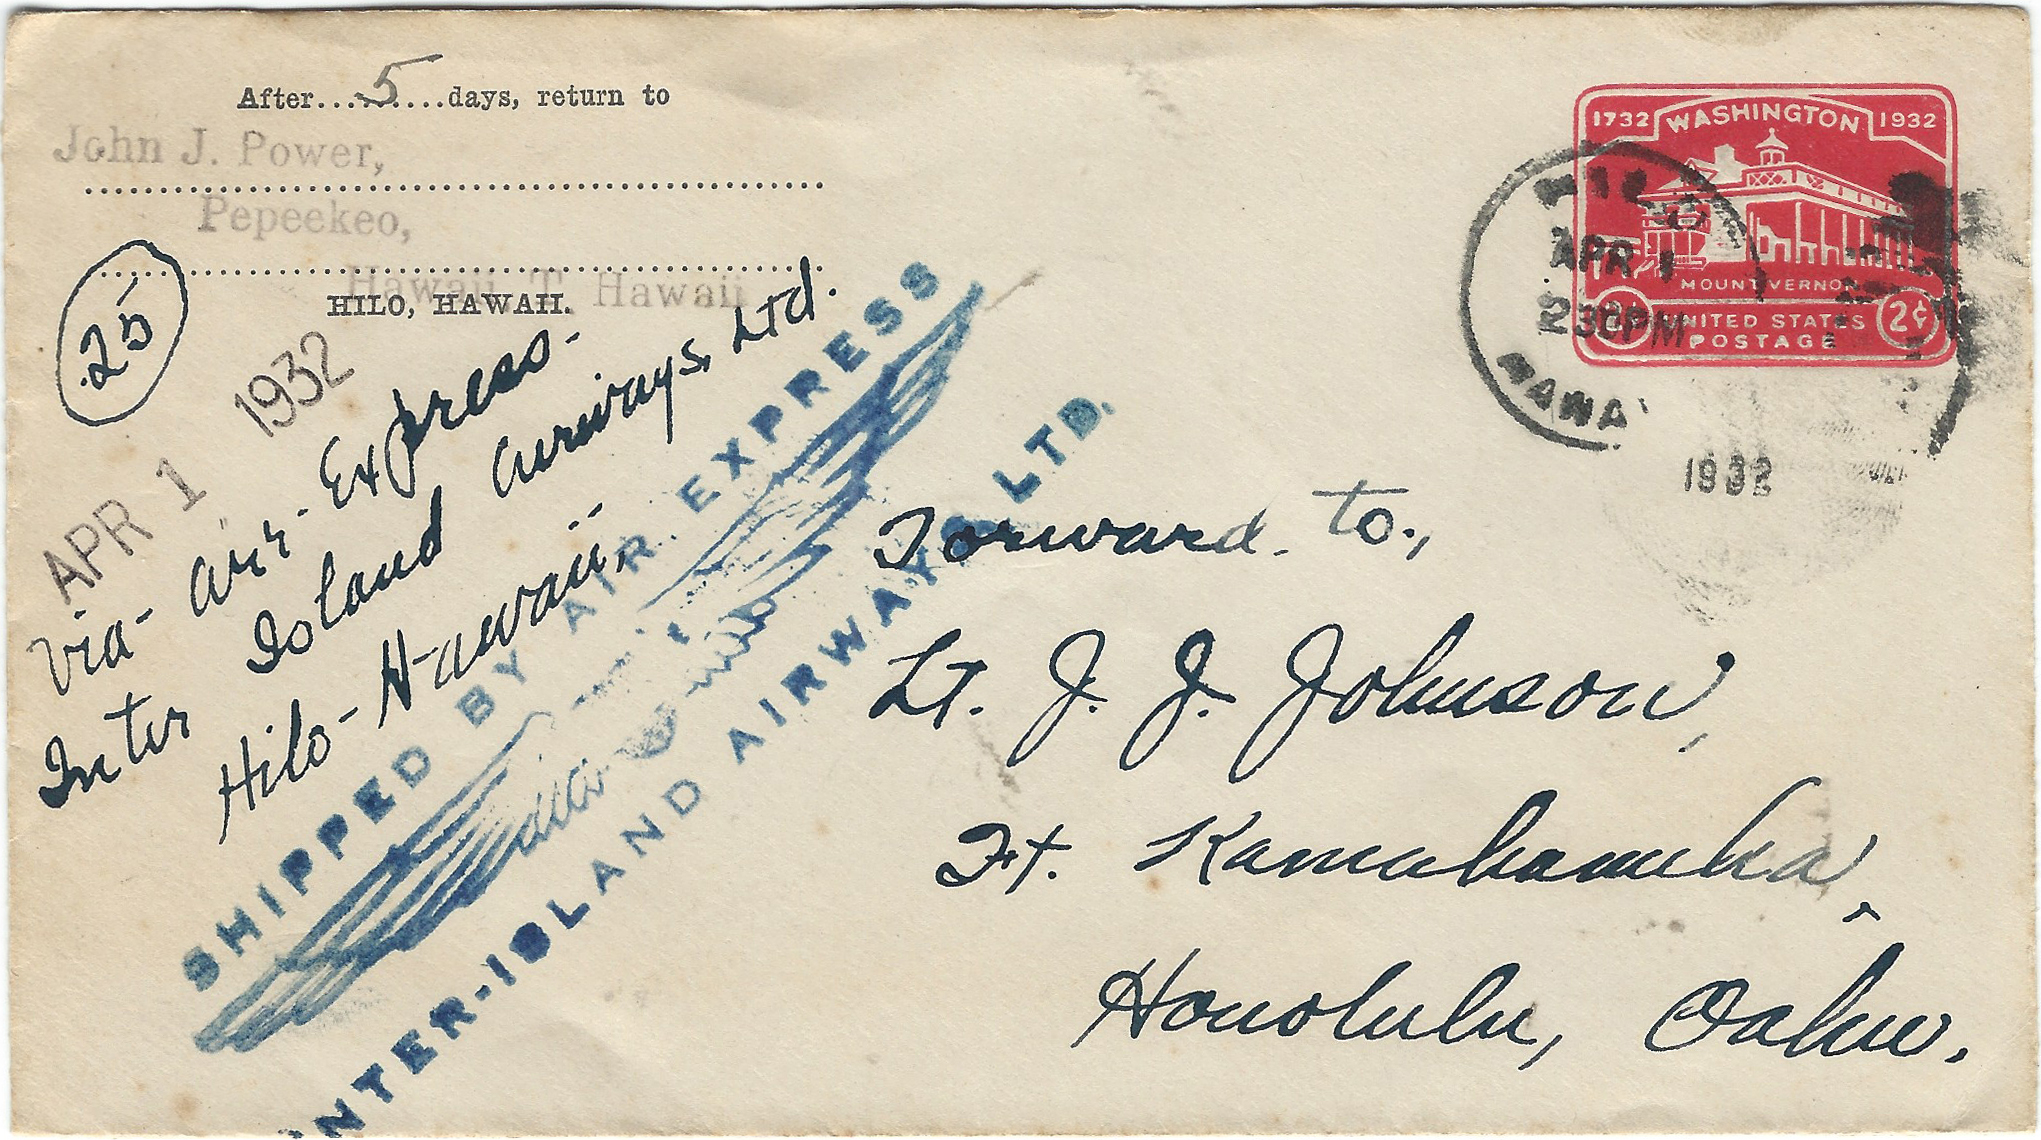 After....5....days, return to
John J. Power,
Pepeekeo,
Hawaii, T. Hawaii
HILO, HAWAII.
.25
APR 1 1932
Via- Air-Express-
Inter Island Airways, Ltd.
Hilo-Hawaii,
SHIPPED BY AIR EXPRESS
INTER-ISLAND AIRWAYS LTD.
1732 WASHINGTON 1932
MOUNT VERNON
2¢ UNITED STATES 2¢
POSTAGE
HILO
APR 1
230PM
HAWA
1932
Forward to.,
Lt. J. J. Johnson,
Ft. Kamahameha,
Honolulu, Oahu.